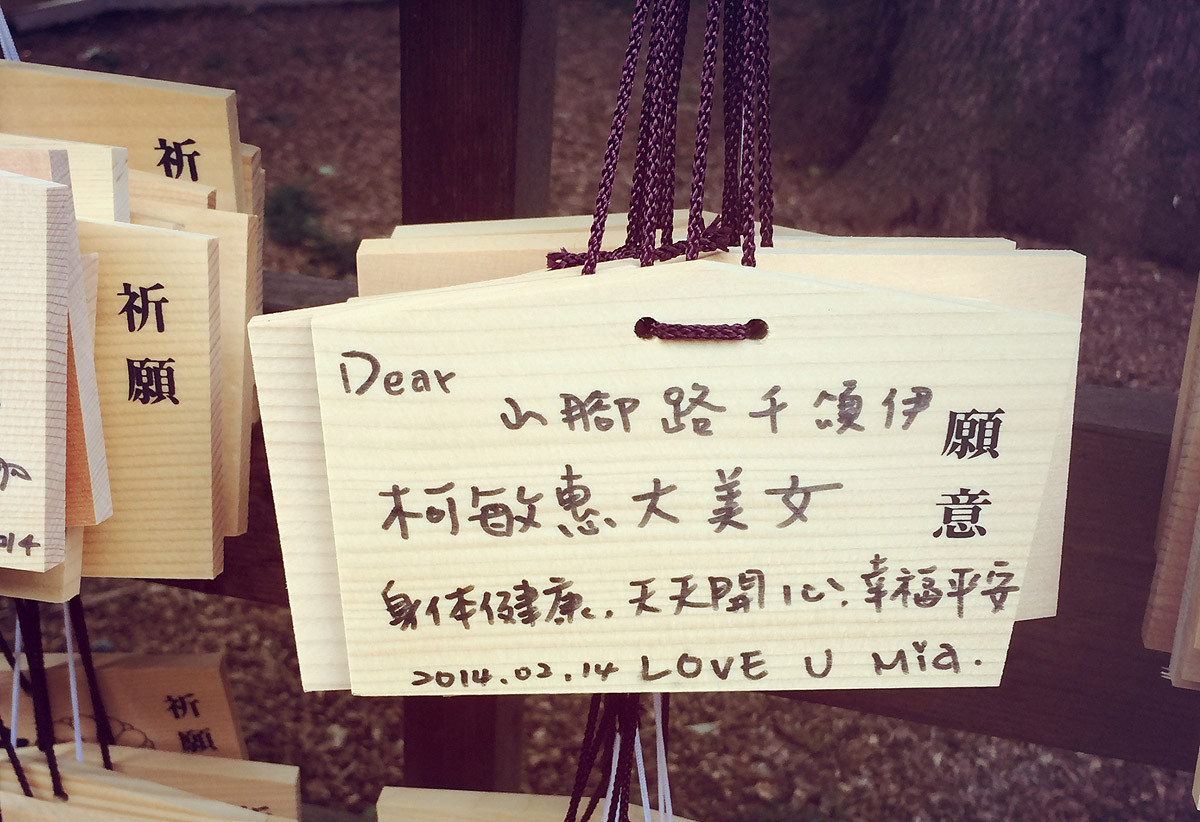 祈
祈願
Dear
山腳路千頌伊
柯敏惠大美女
身体健康、天天開心、幸福平安
2014.02.14 LOVE U Mia.
願意
祈願